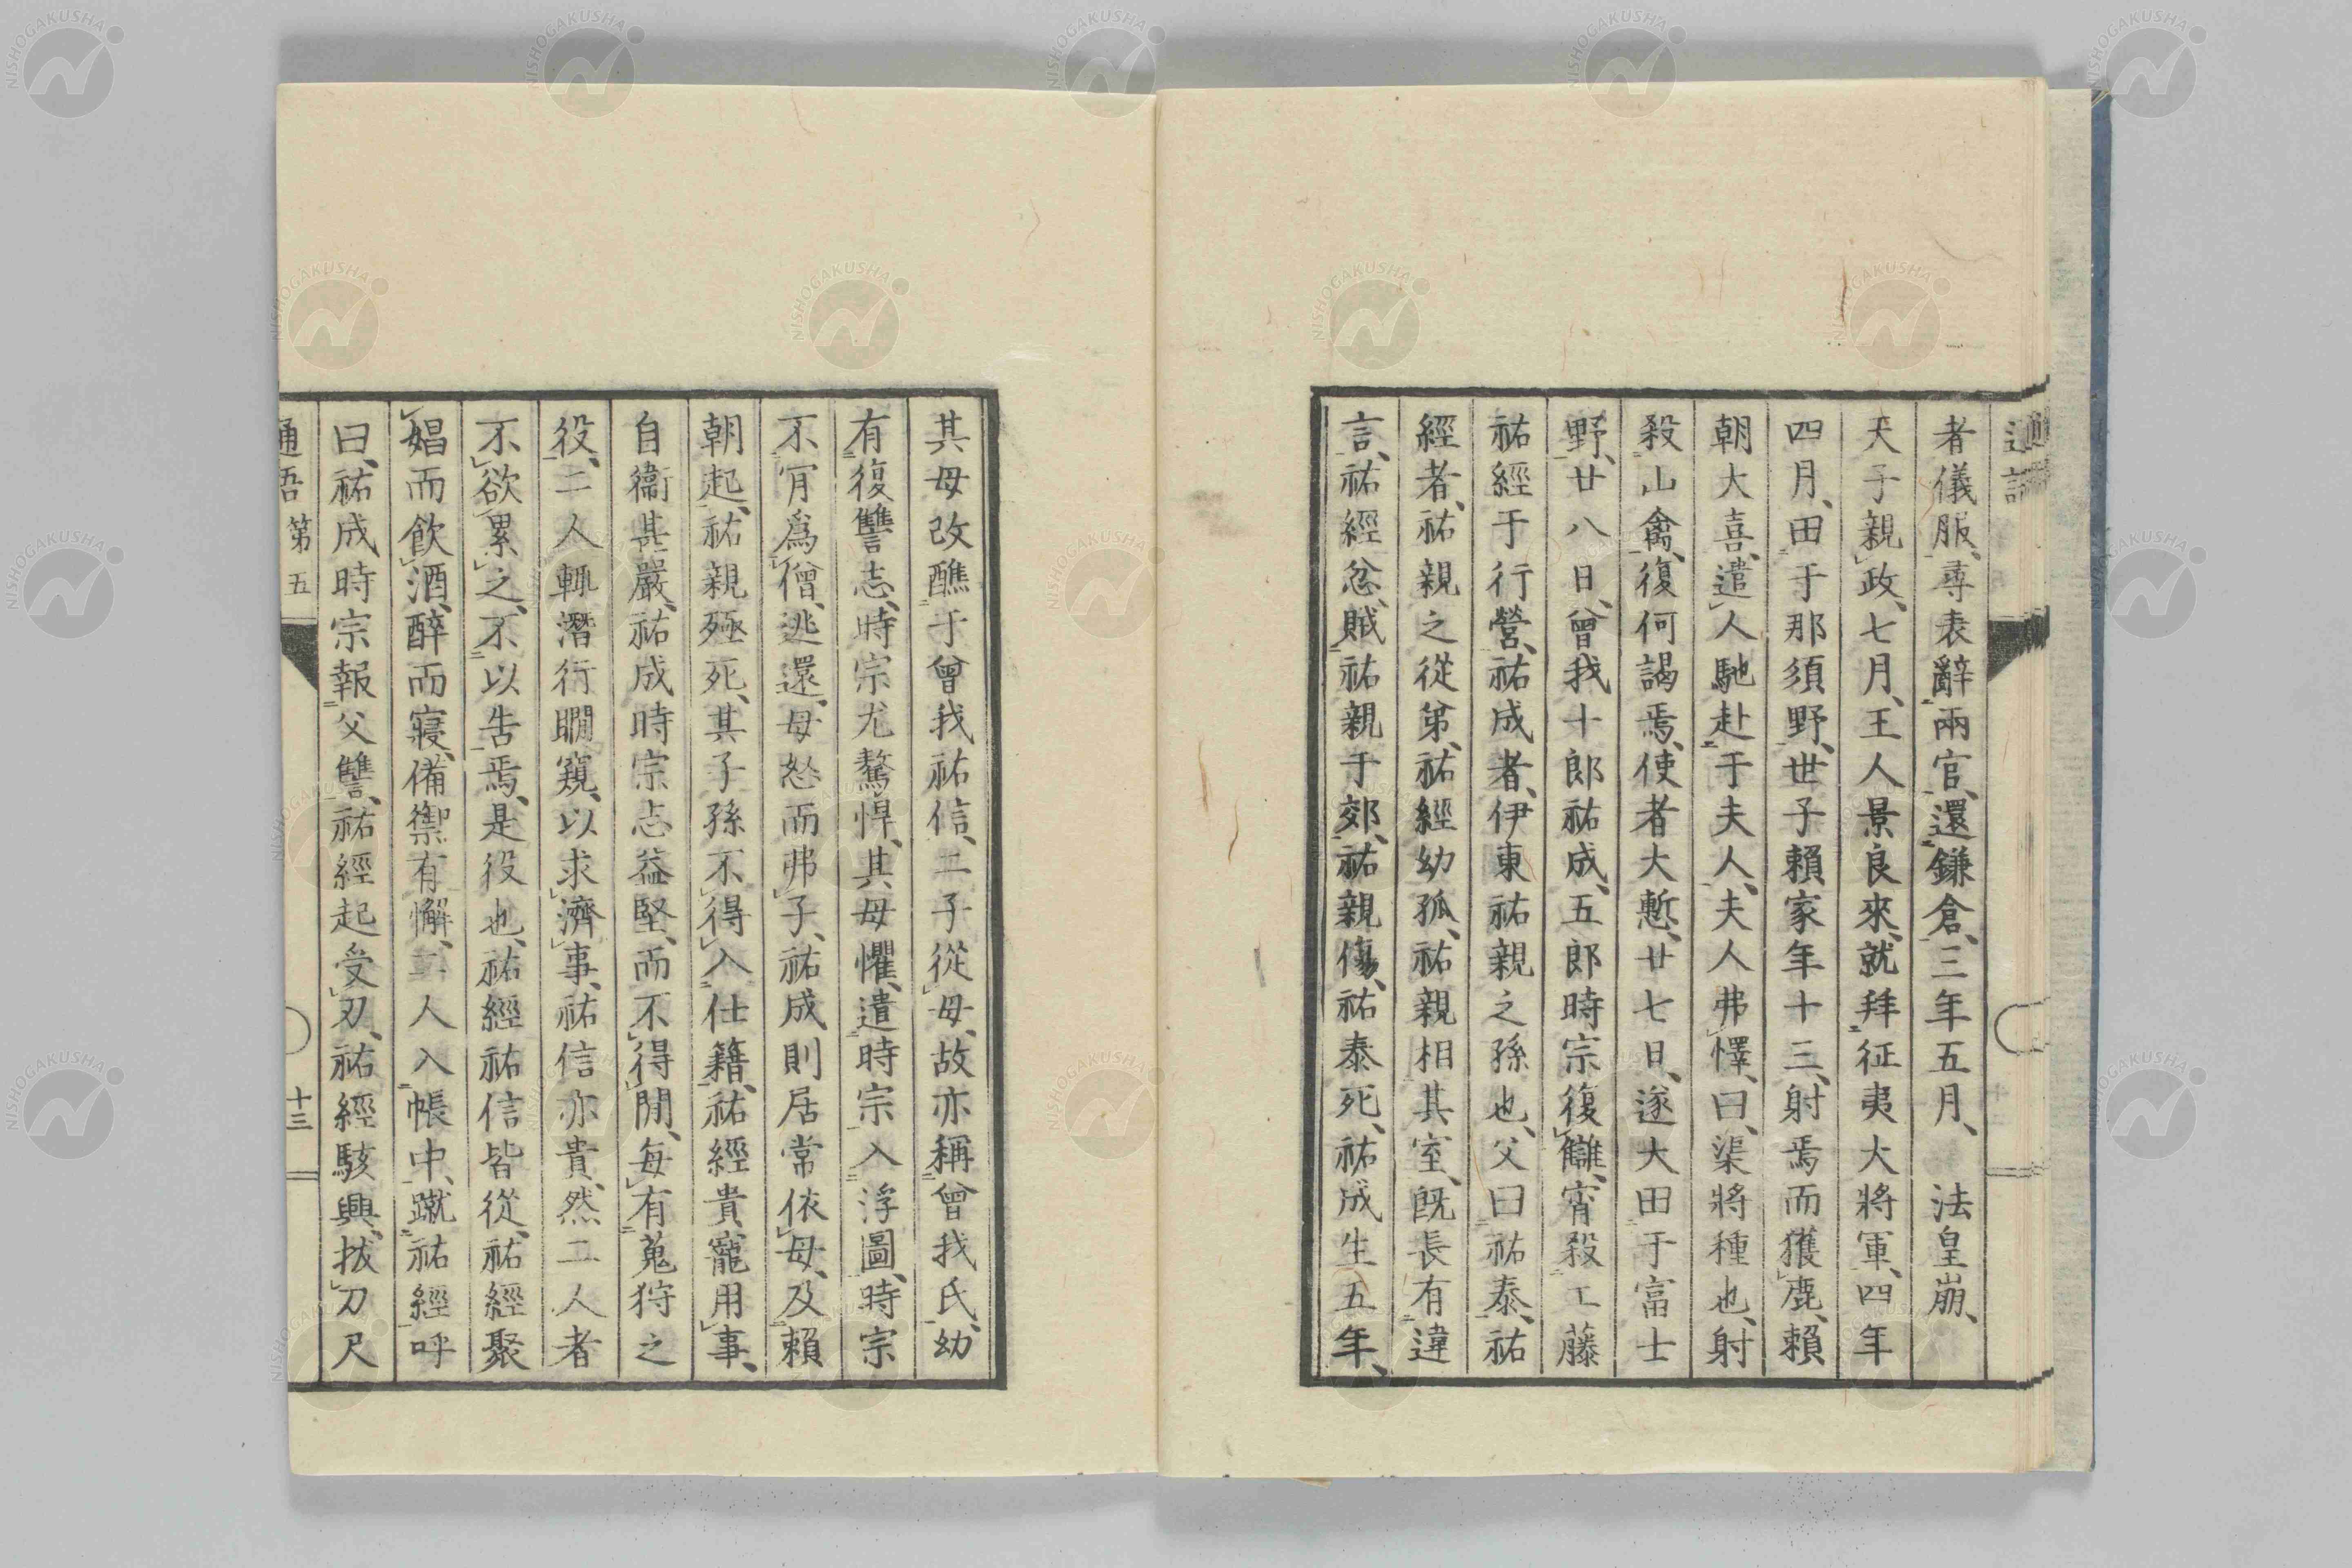 者儀服、尋表辭兩官、還鎌倉、三年五月、　法皇崩、
天子親政、七月、王人景良來、就拜征夷大將軍、四年
四月、田于那須野、世子賴家年十三、射焉而獲鹿、賴
朝大喜、遣人馳赴于夫人、夫人弗懌、曰、渠將種也、射
殺山禽、復何謁焉、使者大慙、廿七日、遂大田于富士
野、廿八日、曾我十郎祐成、五郎時宗復讎、宵殺工藤
祐經于行營、祐成者、伊東祐親之孫也、父曰祐泰、祐
經者、祐親之從弟、祐經幼孤、祐親相其室、既長有違
言、祐經忿、賊祐親于郊、祐親傷、祐泰死、祐成生五年、
其母改醮于曾我祐信、二子從母、故亦稱曾我氏、幼
有復讐志、時宗尤驁悍、其母懼、遣時宗入浮圖、時宗
不肎爲僧、逃還、母怒而弗子、祐成、則居常依母、及賴
朝起、祐親殛死、其子孫不得入仕籍、祐經貴寵用事、
自衞甚嚴、祐成時宗志益堅、而不得閒、每有蒐狩之
役、二人輒潛行瞷窺、以求濟事、祐信亦貴、然二人者
不欲累之、不以告焉、是役也、祐經祐信皆從、祐經聚
娼而飲酒、醉而寢、備禦有懈、二人入帳中、蹴祐經呼
曰、祐成時宗報父讐、祐經起受刃、祐經駭興、拔刀尺
通語 第五 十三
NISHOGAKUSHA